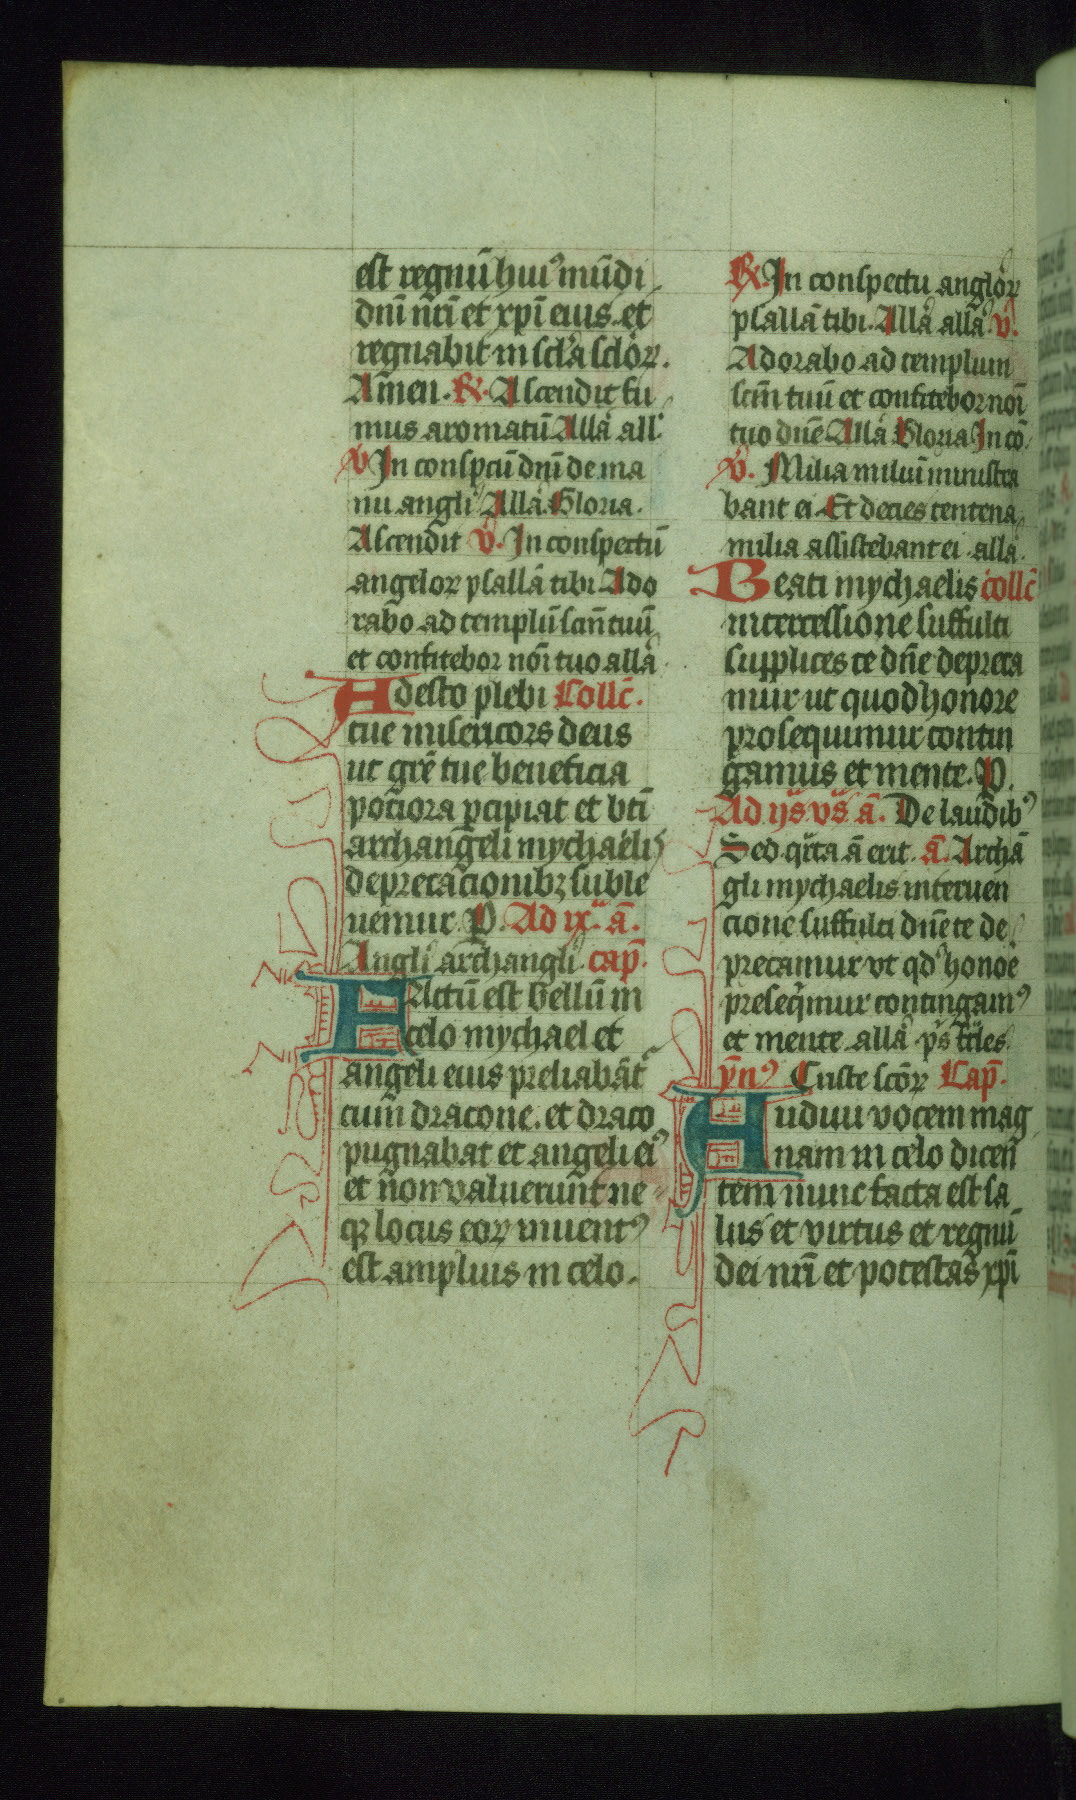 est regnū huiꝰ mūdi
dn̄i nr̄i et xp̄i eius. et
regnabit in scl̓a sclōꝝ.
Amen. ℟. Ascendit fu
mus aromatū Alla̓ all̓.
℣ In conspc̄tū dn̄i de ma
nu angl̓i Alla̓. Gloria.
Ascendit ℣. In conspectū
angeloꝝ psallā tibi Ado
rabo ad templū scm̄ tuū
et confitebor noī tuo alla̓
Adesto plebi Collc̄.
tue misericors deus
ut grē tue beneficia
pociora ꝑcipiat et bt̄i
archangeli mychaelis
deprecacionibꝫ suble
uemur. P. Ad ix. ā.
Angl̓i archangl̓i. cap̄.
FActū est bellū in
celo mychael et
angeli eius preliabāt
cum dracone. et draco
pugnabat et angeli eiꝰ
et non valuerunt ne
qꝫ locus eoꝝ inuentꝰ
est amplius in celo.
℟. In conspectu angloꝝ
psallā tibi. Alla̓ alla̓. ℣.
Adorabo ad templum
scm̄ tuū et confitebor noī
tuo dnē Alla̓ Gloria In cō
℣. Milia miliū ministra
bant ei Et decies centena
milia assistebant ei. alla̓.
Beati mychaelis collc̄
intercessione suffulti
supplices te dn̄e depreca
mur ut quod honore
prosequimur contin
gamus et mente. P.
Ad ijs vs̄ ā. De laudibꝰ
Sed qr̄ta ā erit. ā. Archā
gli mychaelis interuen
cione suffulti dn̄e te de
precamur vt qd̓ honoe
preseqimur contingamꝰ
et mente alla̓ ps̄ fr̄les
ym̄ꝰ Criste scōꝝ Cap̄.
Audiui vocem mag
nam in celo dicen
tem nunc facta est sa
lus et virtus et regnū
dei nr̄i et potestas xp̄i